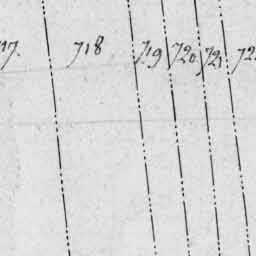 717. 718 719 720 721 722